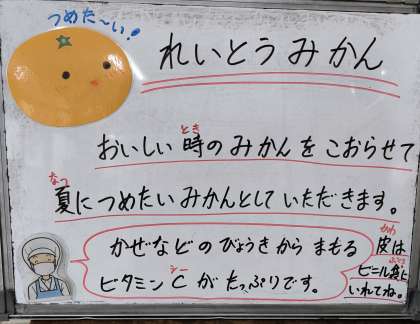 つめた〜い!
れいとうみかん
おいしい時のみかんをこおらせて
とき
夏につめたいみかんとしていただきます。
なつ
かぜなどのびょうきからまもる
ビタミンCがたっぷりです。
シー
皮は
かわ
ビニール袋に
ぶくろ
いれてね。